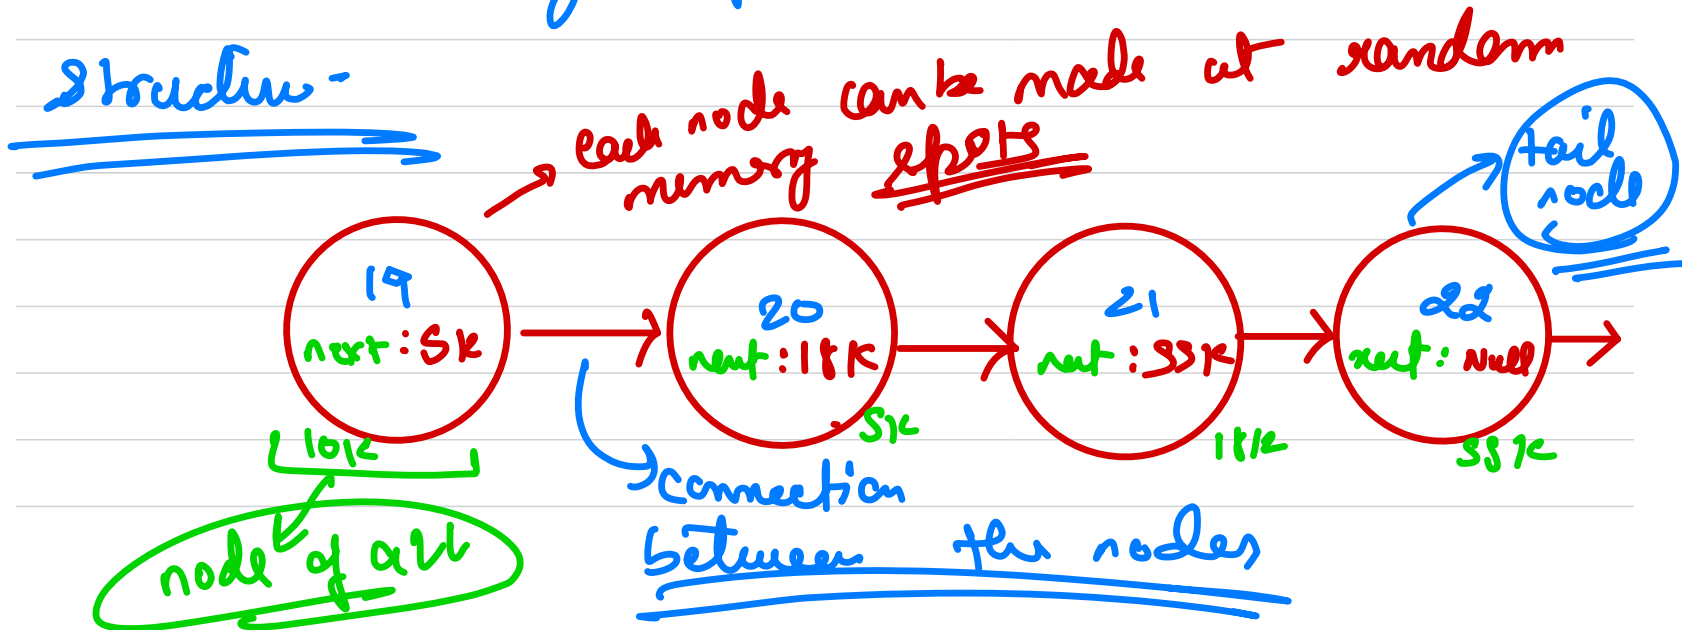 Structure -
each node can be made at random
memory spots
tail
node
19
next : 5k
20
next : 18k
21
next : 33k
22
next : Null
10k
5k
18k
33k
connection
between the nodes
node of